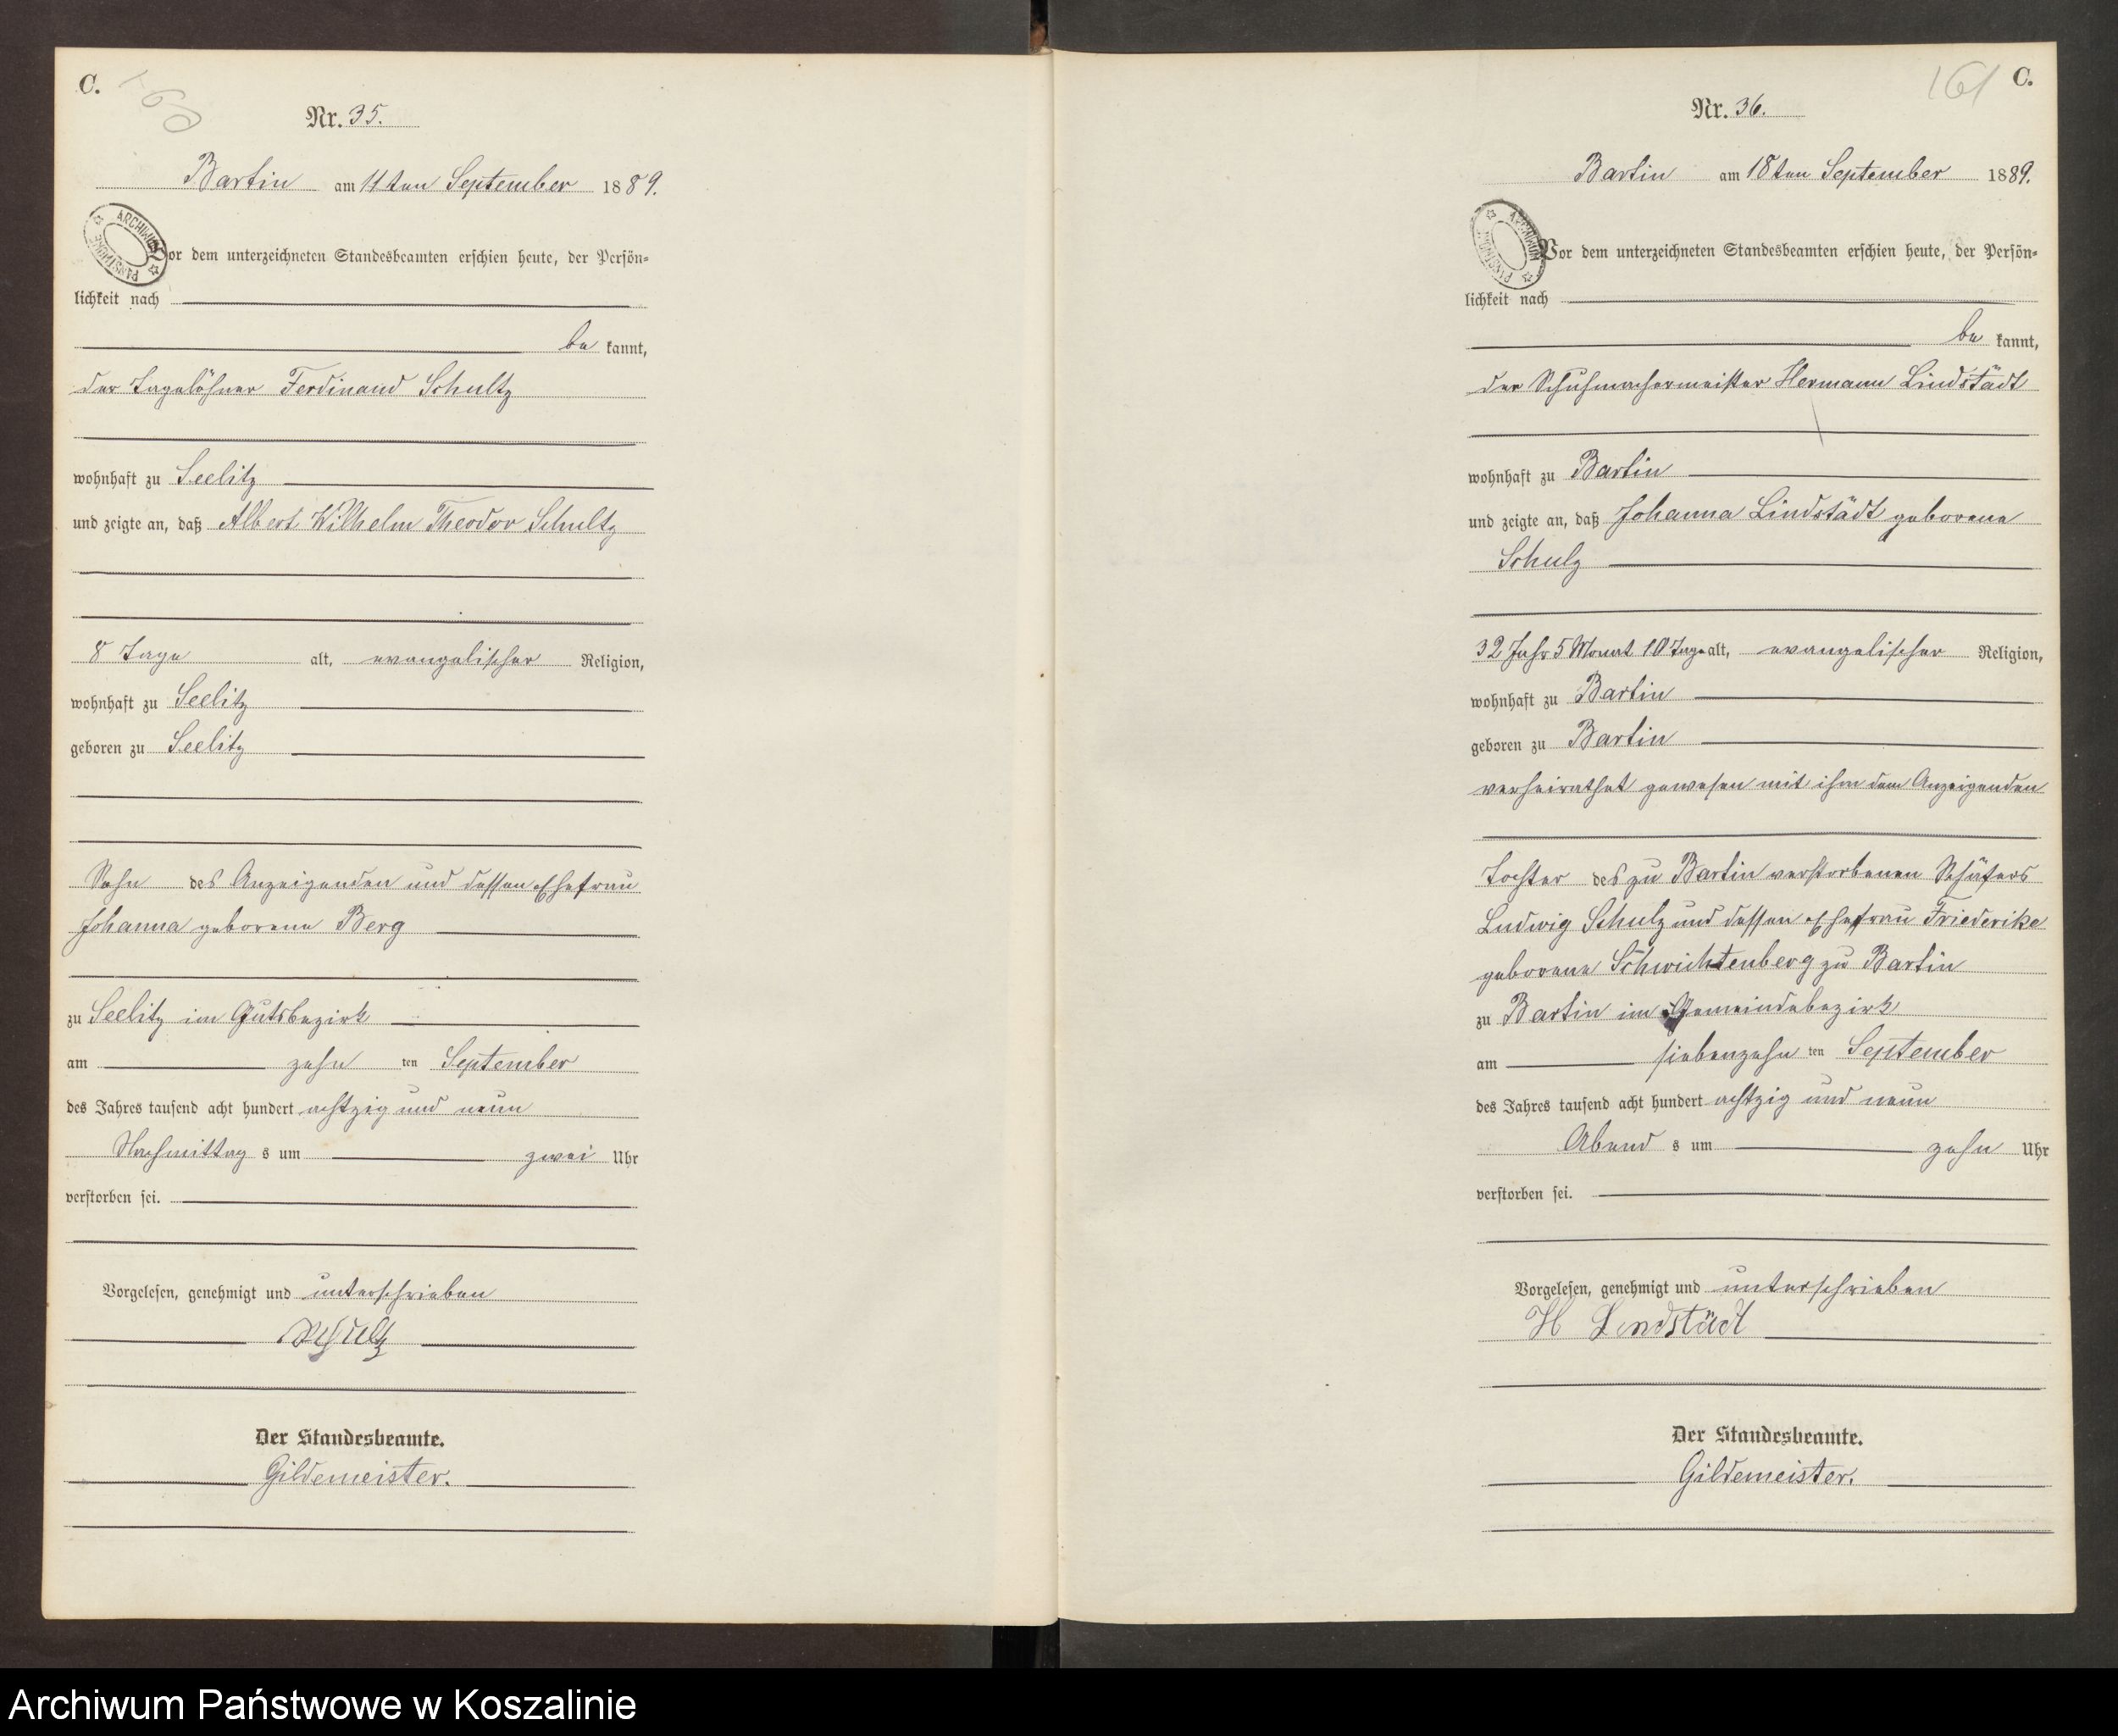 C.
160
Nr. 35.
Bartin am 11ten September 1889.
ARCHIWUM PAŃSTWOWE
Vor dem unterzeichneten Standesbeamten erschien heute, der Persön-
lichkeit nach
be kannt,
der Tagelöhner Ferdinand Schultz
wohnhaft zu Seelitz
und zeigte an, daß Albert Wilhelm Theodor Schultz
8 Tage alt, evangelischer Religion,
wohnhaft zu Seelitz
geboren zu Seelitz
Sohn des Anzeigenden und dessen Ehefrau
Johanna geborene Berg
zu Seelitz im Gutsbezirk
am zehn ten September
des Jahres tausend acht hundert achtzig und neun
Nachmittag s um zwei Uhr
verstorben sei.
Vorgelesen, genehmigt und unterschrieben
Schultz
Der Standesbeamte.
Gildemeister.
161 C.
Nr. 36.
Bartin am 18ten September 1889.
ARCHIWUM PAŃSTWOWE
Vor dem unterzeichneten Standesbeamten erschien heute, der Persön-
lichkeit nach
be kannt,
der Schuhmachermeister Hermann Lindstädt
wohnhaft zu Bartin
und zeigte an, daß Johanna Lindstädt geborene
Schulz
32 Jahr 5 Monat 10 Tage alt, evangelischer Religion,
wohnhaft zu Bartin
geboren zu Bartin
verheirathet gewesen mit ihm dem Anzeigenden
Tochter des zu Bartin verstorbenen Schäfers
Ludwig Schulz und dessen Ehefrau Friederike
geborene Schwichtenberg zu Bartin
zu Bartin im Gemeindebezirk
am siebenzehn ten September
des Jahres tausend acht hundert achtzig und neun
Abend s um zehn Uhr
verstorben sei.
Vorgelesen, genehmigt und unterschrieben
H Lindstädt
Der Standesbeamte.
Gildemeister.
Archiwum Państwowe w Koszalinie